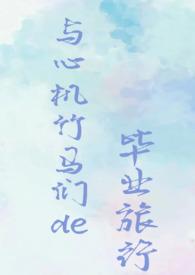 与心机竹马们de
毕业旅行